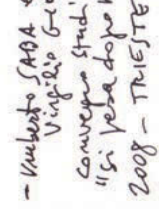 - Umberto SABA
Virgilio Gio
Convegno Studi
"Si pesa dopo
2008 - TRIESTE